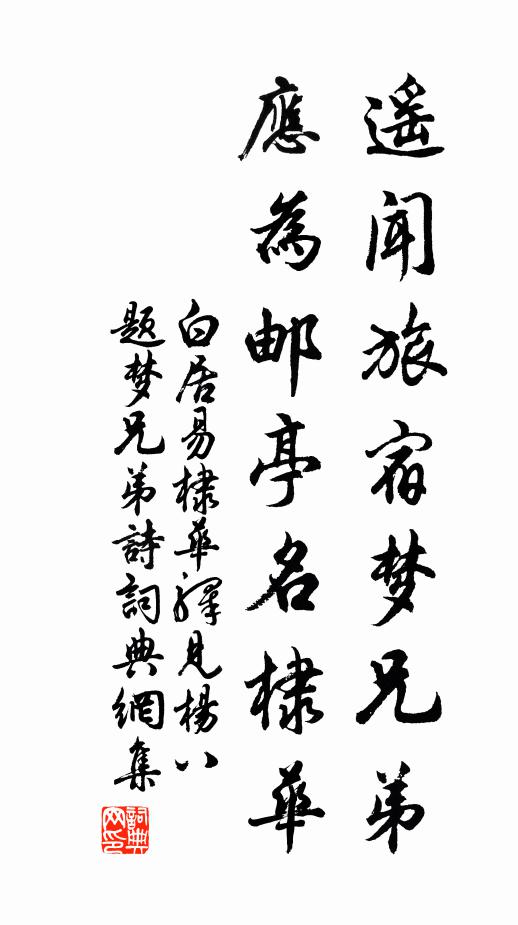 遥闻旅宿梦兄弟
應為邮亭名棣華
白居易棣華驛見楊八
題梦兄弟詩詞典網集
詞典
网印